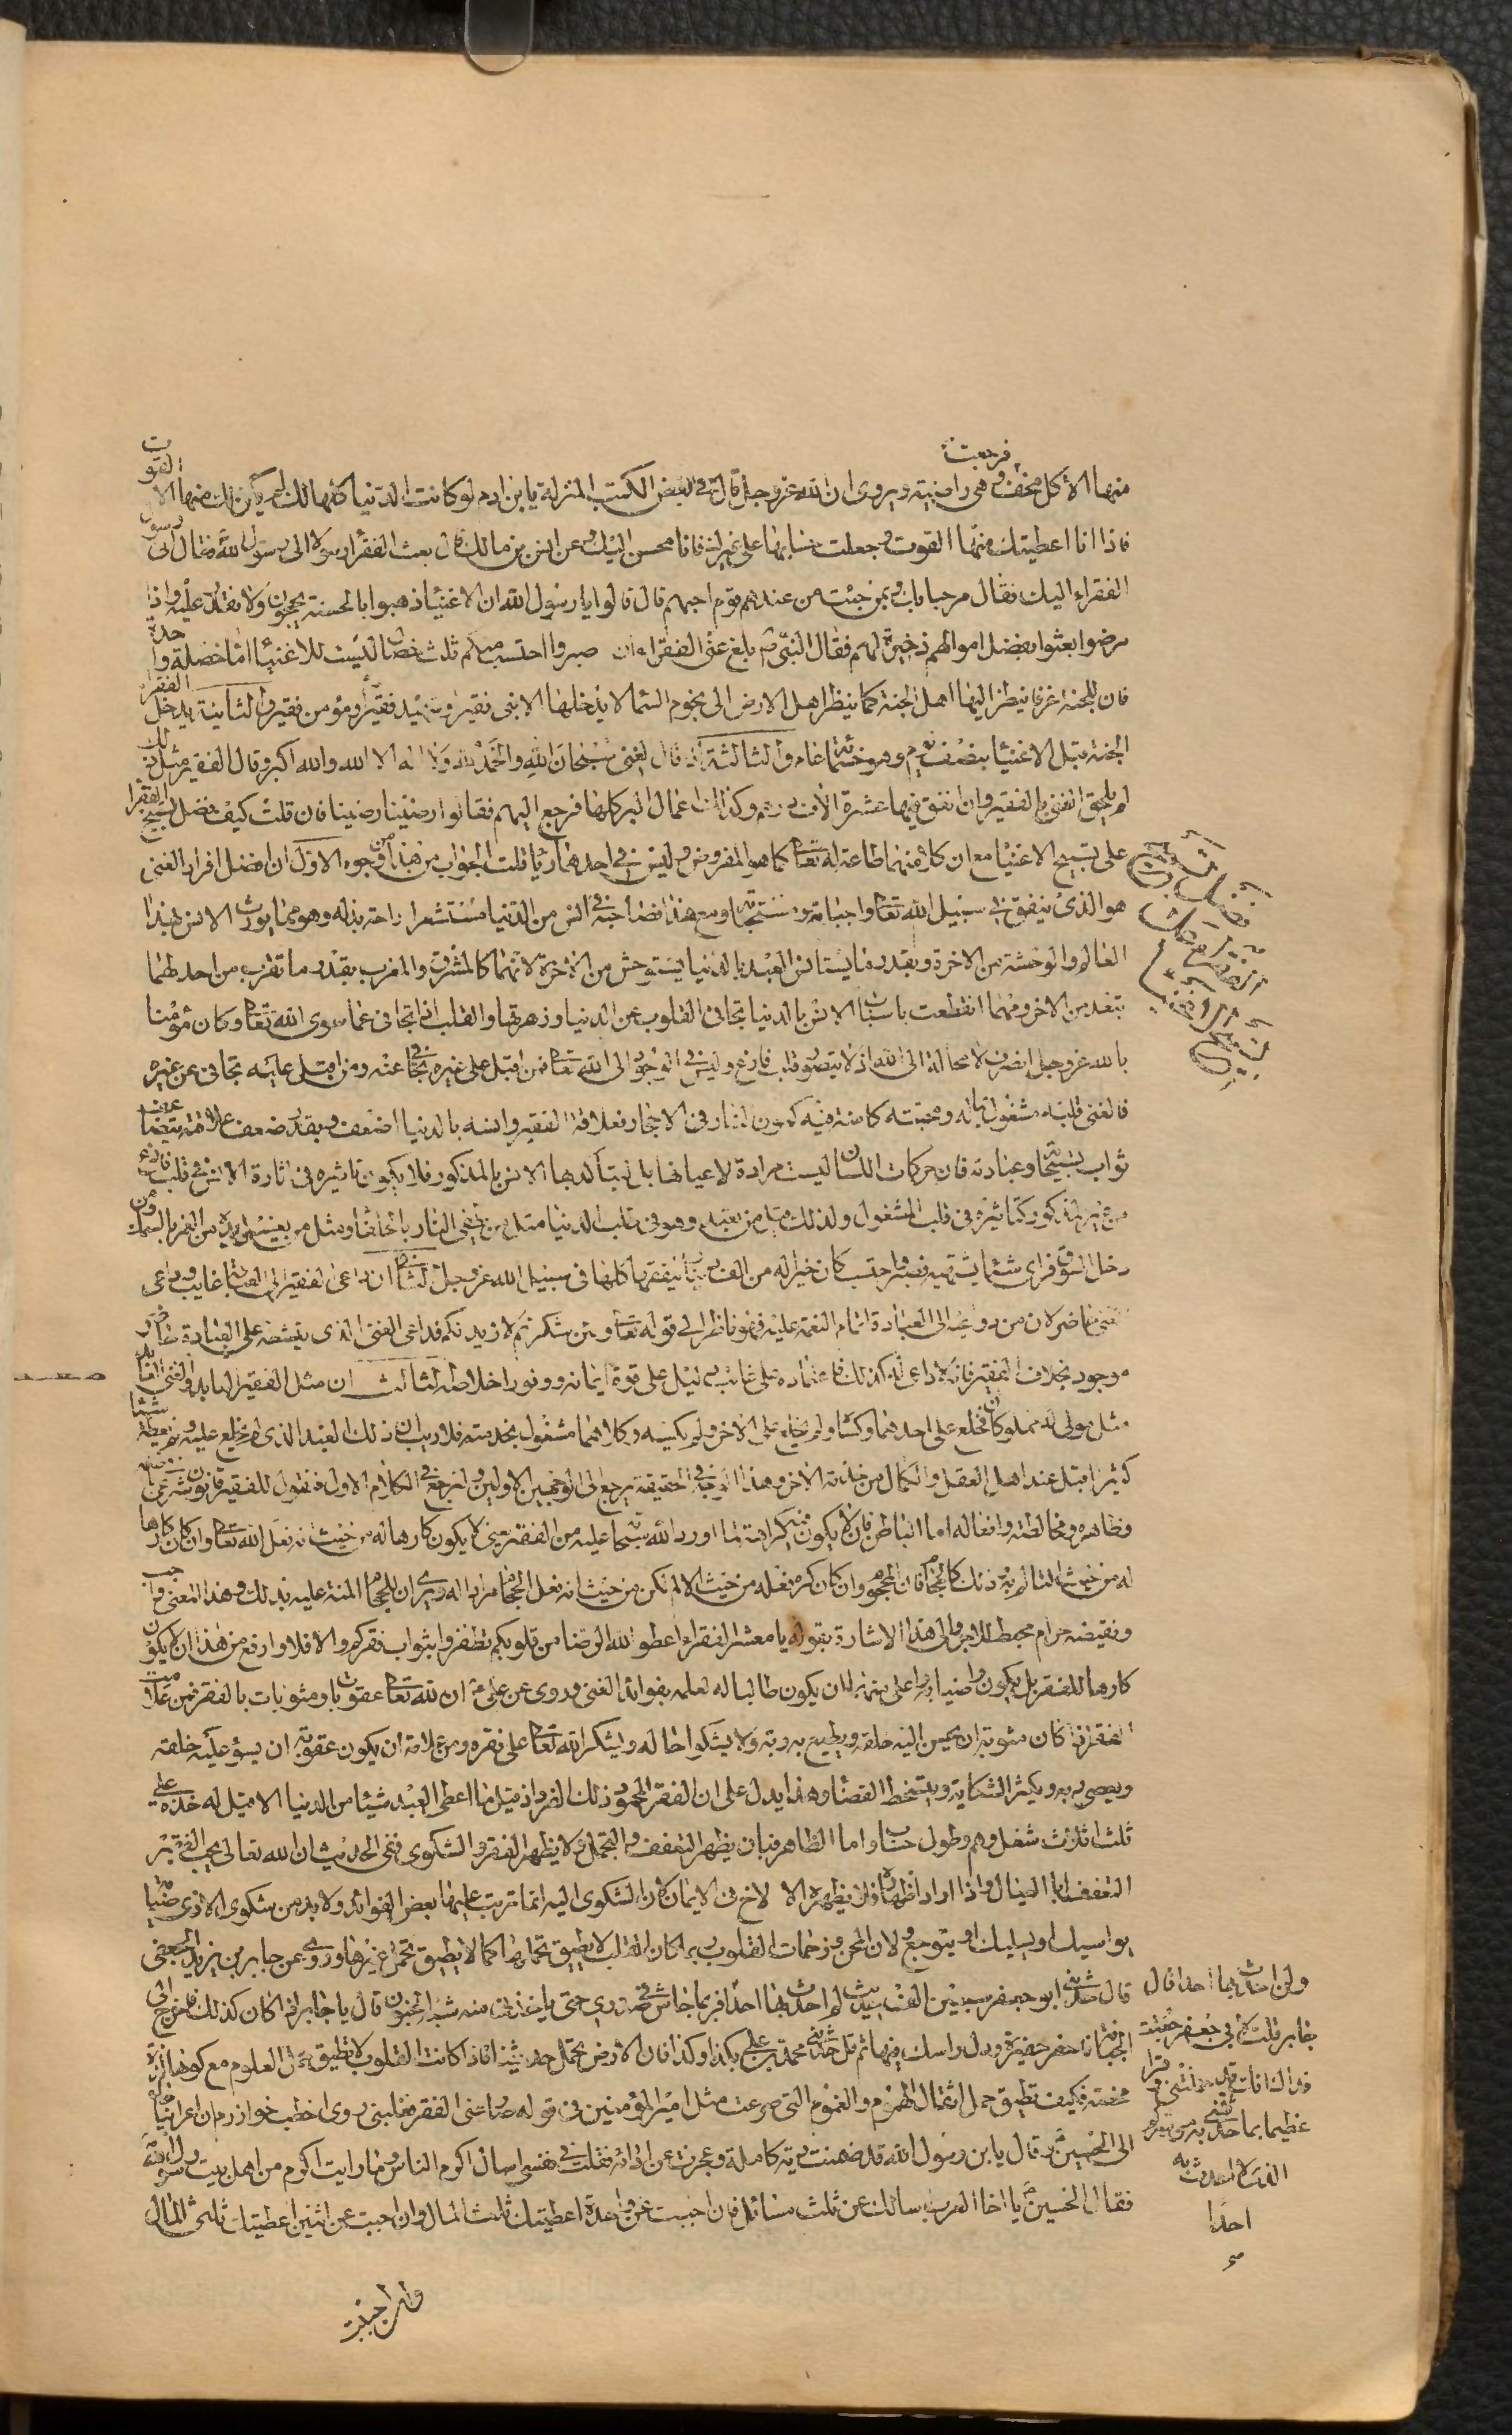 فرجعت
منها الاكل مخفف وهى راضية ويروى ان الله عز وجل قال فى بعض الكتب المنزلة يا بن ادم لو كانت الدنيا كلها لك لم يكن لك منها الا القوت
فاذا انا اعطيتك منها القوت وجعلت حسابها على غيرك فانا محسن اليك وعن انس بن مالك قال بعث الفقراء رسولا الى رسول الله فقال انى رسول
الفقراء اليك فقال مرحبا بك وبمن جئت من عندهم قوم احبهم قال قالوا يا رسول الله ان الاغنيا ذهبوا بالجنة يحجون ولا نقدر عليه واذا
مرضوا بعثوا بفضل اموالهم ذخيرة لهم فقال النبى بلغ عنى الفقراء ان صبروا احتسب منكم ثلث خصال ليست للاغنيا اما خصلة واحدة
فان للجنة غرفا ينظر اليها اهل الجنة كما ينظر اهل الارض الى نجوم السما لا يدخلها الا نبى فقير وشهيد فقير ومؤمن فقير والثانية يدخل الفقرا
الجنة قبل الاغنيا بنصف يوم وهو خمسماة عام والثالثة اذا قال الغنى سبحان الله والحمد لله ولا اله الا الله والله اكبر وقال الفقير مثل ذلك
لم يلحق الغنى بالفقير وان انفق فيها عشرة الاف درهم وكذلك اعمال البر كلها فرجع اليهم فقالوا رضينا رضينا فان قلت كيف فضل تسبيح الفقرا
على تسبيح الاغنيا مع ان كلا منهما طاعة لله تعالى كما هو المفروض وليس فى احدهما ريا قلت الجواب من هذا من وجوه الاول ان افضل افراد الغنى
هو الذى ينفق فى سبيل الله تعالى واجباته ومستحباته ومع هذا فصاحبه فى انس من الدنيا مستشعر راحة بذله وهو مما يورث الانس بهذا
العالم والوحشة من الاخرة وبقدر ما يستانس العبد بالدنيا يستوحش من الاخرة لانهما كالمشرق والمغرب بقدر ما تقرب من احدهما
تبعد من الاخر ومهما انقطعت اسباب الانس بالدنيا تجافى القلوب عن الدنيا وزهرتها والقلب اذا تجافى عما سوى الله تعالى وكان مؤمنا
بالله عز وجل انصرف لا محالة الى الله اذ لا يتصور قلب فارغ وليس فى الوجود الا الله تعالى فمن اقبل على غيره تجافى عنه ومن اقبل عليه تجافى عن غيره
فالغنى قلبه مشغول بماله ومحبته كامنة فيه كمون النار فى الاحجار وعلاقة الفقير وانسه بالدنيا اضعف وبقدر ضعف علاقته يتضاعف
ثواب تسبيحاته وعبادته فان حركات اللسان ليست مرادة لاعيانها بل ليتأكد بها الانس بالمذكور فلا يكون تاثيره فى اثارة الانس فى قلب فارغ
من غير المذكور كتاثيره فى قلب المشغول ولذلك قيل من تعبد وهو فى طلب الدنيا مثل من يطفى النار بالحلفا ومثل من يغسل يده من الغمر بالسمك ومن
دخل السوق فراى شيئا يشتهيه فصبر واحتسب كان خيرا له من الف دينار ينفقها كلها فى سبيل الله عز وجل الثانى ان داعى الفقير الى العبادة غايب وداعى
الغنى حاضر لان من دواعيه الى العبادة اتمام النعمة عليه فهو ناظر الى قوله تعالى ولئن شكرتم لازيدنكم فداعى الغنى الذى يبعثه على العبادة حاضر
موجود بخلاف الفقير فانه لا داعى له كذلك فاعتماده على غائب دليل على قوة ايمانه ووفور اخلاصه الثالث ان مثل الفقير العابد والغنى العابد
مثل مولى له مملوكان فخلع على احدهما وكساه ولم يخلع على الاخر ولم يكسه وكلاهما مشغول بخدمته فلا ريب ان ذلك العبد الذى لم يخلع عليه ولم يعطه شيئا
كثيرا قبل عند اهل العقل والكمال من خدمة الاخر وهذا الوجه فى الحقيقة يرجع الى الوجهين الاولين ولنرجع الى الكلام الاول فنقول للفقير قانون شرعى فى باطنه
وظاهره ومخالطته وافعاله اما الباطن فان لا يكون فيه كراهة لما اورد الله سبحانه عليه من الفقر يعنى لا يكون كارها له من حيث انه فعل الله تعالى وان كان كارها
له من حيث التالم به وذلك كالحجام فان المحجوم وان كان كره فعله من حيث الالم لكن من حيث انه فعل الحجام مراد له ويرى ان للحجام المنة عليه بذلك وهذا المعنى واجب
ونقيضه حرام محبط للاجر والى هذا الاشارة بقوله يا معشر الفقراء اعطوا الله الرضا من قلوبكم تظفروا بثواب فقركم والا فلا وارفع من هذا ان لا يكون
كارها للفقر بل يكون راضيا به واعلى منه ان يكون طالبا له لعلمه بفوائد الغنى وروى عن على ان لله تعالى عقوبات ومثوبات بالفقر فمن علامة
الفقر اذا كان مثوبة ان يحسن اليه خلقه ويطيع به ربه ولا يشكوا حاله ويشكر الله تعالى على فقره ومن علامته ان يكون عقوبة ان يسؤ عليه خلقه
ويعصى ربه ويكثر الشكاية ويتسخط القضا وهذا يدل على ان الفقر المحمود ذلك الفقر اذ قيل ما اعطى العبد شيئا من الدنيا الا قيل له خذه على
ثلث اثلاث شغل وهم وطول حساب واما الظاهر فبان يظهر التعفف والتجمل ولا يظهر الفقر والشكوى ففى الحديث ان الله تعالى يحب الفقير
المتعفف ابا العيال واذا اراد اظهاره فلا يظهره الا لاخ فى الايمان فان الشكوى اليه انما ترتب عليها بعض الفوائد ولا بد من شكوى الا ذى
يواسيك او يسليك او يتوجع ولان المحن وزحمات القلوب ربما كان القلب لا يطيق تحملها كما لا يطيق تحمل غيرها وروى عن جابر بن يزيد الجعفى
قال حدثنى ابو جعفر سبعين الف حديث لم احدث بها احدا فربما جاش فى صدرى حتى ياخذنى منه شبه الجنون قال يا جابر فاذا كان كذلك فاخرج الى
الجبان فاحفر حفيرة ودل راسك فيها ثم قل حدثنى محمد بن على بكذا وكذا فان الارض تحمل حديثنا فاذا كانت القلوب لا تطيق حمل العلوم مع كونها
مخفية فكيف تطيق حمل اثقال الهموم والغموم التى صرعت مثل امير المؤمنين فى قوله صارعنى الفقر فغلبنى روى اخطب خوارزم ان اعرابيا
الى الحسين وقال يا ابن رسول الله قد ضمنت دية كاملة وعجزت عن ادائه فقلت فى نفسى اسال اكرم الناس وما رايت اكرم من اهل بيت رسول الله
فقال الحسين يا اخا العرب سالك عن ثلث مسائل فان اجبت عن واحدة اعطيتك ثلث المال وان اجبت عن اثنين اعطيتك ثلثى المال
ولن احدث بها احدا قال
جابر قلت لابى جعفر جعلت
فداك انك قد حملتنى وقرا
عظيما بما حدثتنى به من سركم
الذى لا احدث به
احدا
وان اجبت